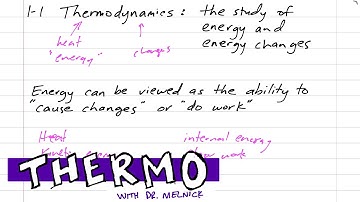 1-1 Thermodynamics: the study of
energy and
energy changes
heat
"energy"
changes
Energy can be viewed as the ability to
"cause changes" or "do work"
Heat
internal energy
work
THERMO
WITH DR. MELNICK